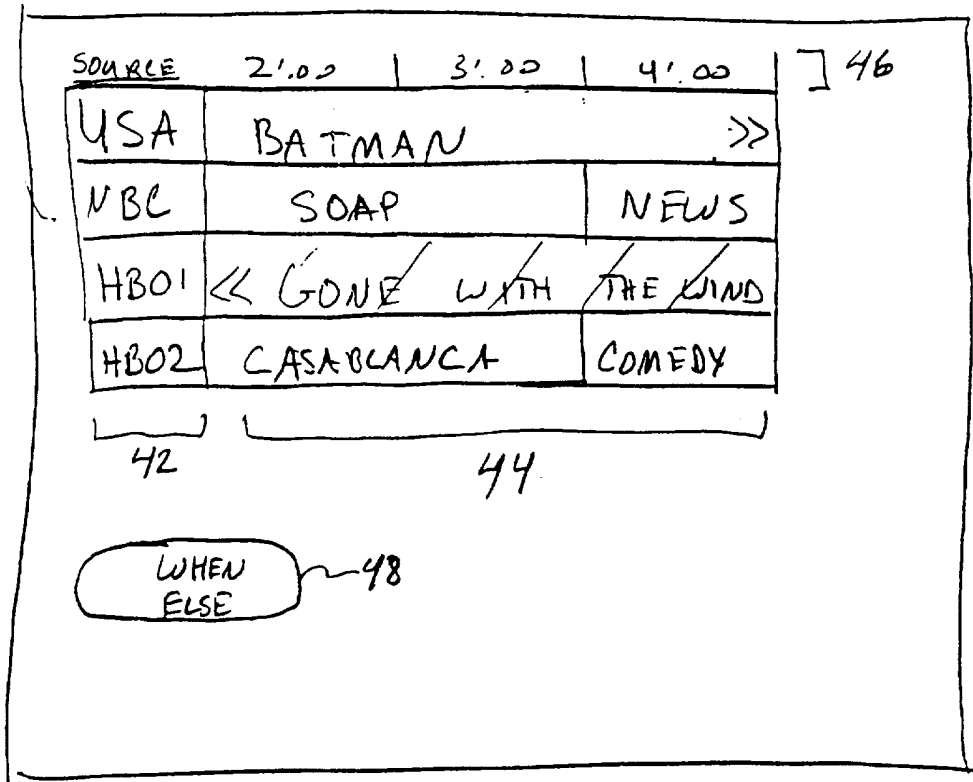 SOURCE 2:00 | 3:00 | 4:00 | ] 46
USA BATMAN >>
NBC SOAP NEWS
HBO1 << GONE WITH THE WIND
HBO2 CASABLANCA COMEDY
42 44
WHEN 48
ELSE